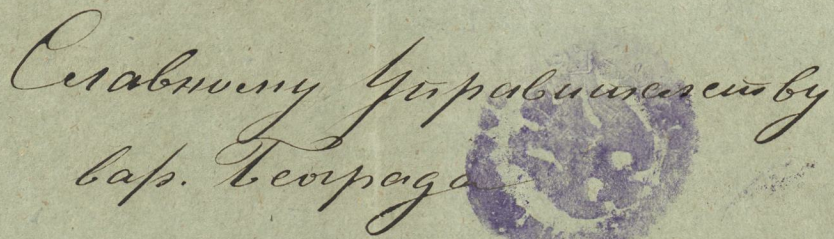 Славному Управитељству
вар. Београда